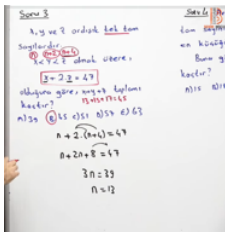 Soru 3
x, y ve z ardışık tek tam
sayılardır.
n n+2 n+4
x<y<z olmak üzere,
x + 2.z = 47
olduğuna göre, x+y+z toplamı
kaçtır? 13+15+17=45
A) 39 B) 45 C) 51 D) 57 E) 63
n + 2.(n+4) = 47
n + 2n + 8 = 47
3n = 39
n = 13
Soru 4
tam
en küçüğü
Buna
kaçtır?
A) 15